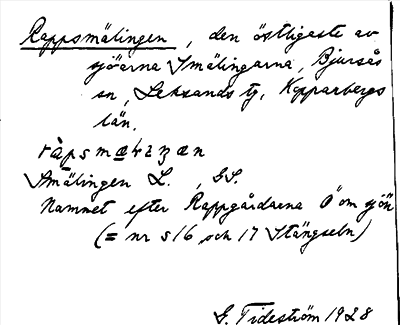 Rappsmälingen, den östligaste av
sjöarna Smälingarna, Bjursås
sn, Leksands tg, Kopparbergs
län.
ràpsmæ̀lızæn
Smälingen L. , GS.
Namnet efter Rappgårdarna Ö om sjön
(= nr s 16 och 17 Stängseln)
G. Tideström 1928